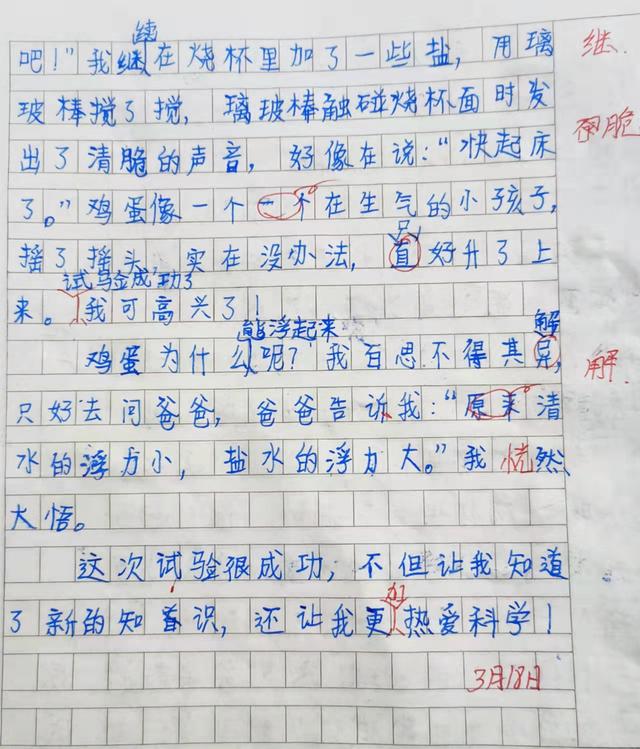 续
吧！"我继在烧杯里加了一些盐，用璃
继
玻棒搅了搅，璃玻棒触碰烧杯面时发
脆
出了清脆的声音，好像在说："快起床
了。"鸡蛋像一个一个在生气的小孩子，
只
摇了摇头，实在没办法，直好升了上
试验成功了
来。我可高兴了！
能浮起来 解
鸡蛋为什么呢？我百思不得其，
解
只好去问爸爸，爸爸告诉我："原来清
水的浮力小，盐水的浮力大。"我恍然
大悟。
这次试验很成功，不但让我知道
加
了新的知识，还让我更热爱科学！
3月18日